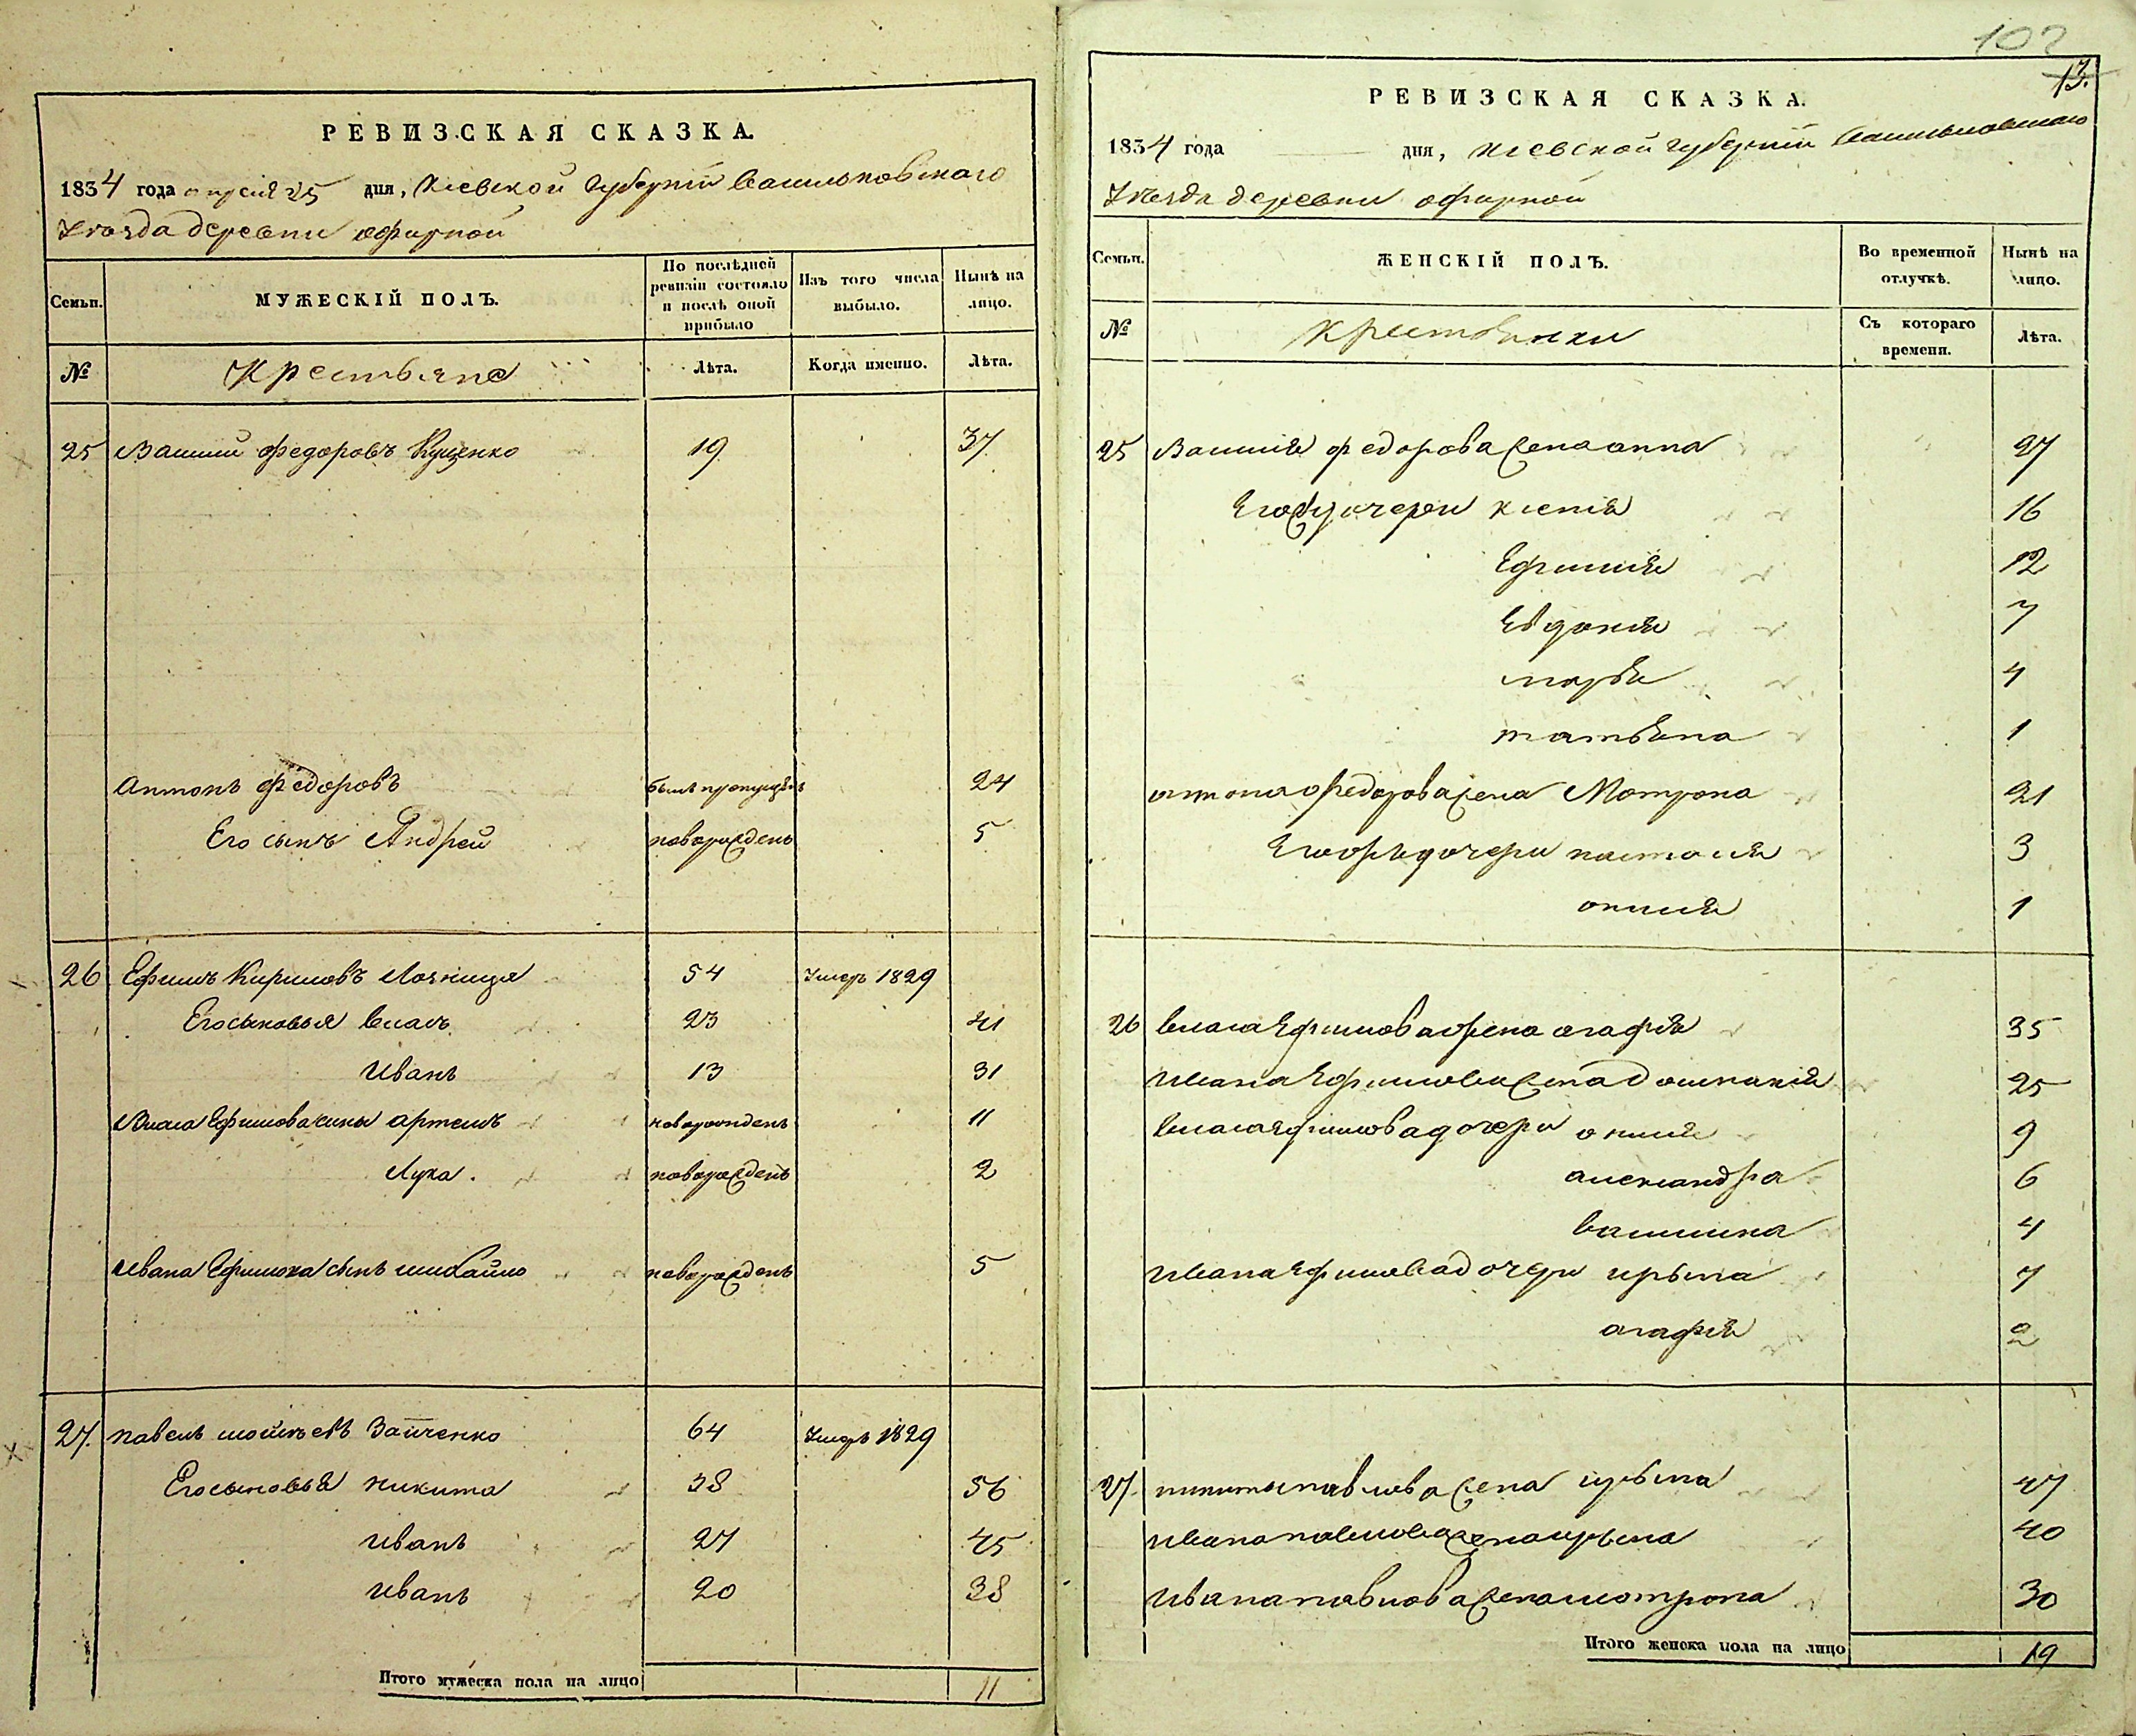 РЕВИЗСКАЯ СКАЗКА.
1834 года апреля 25 дня, Киевской Губернiи Васильковскаго
Уезда деревни офирной
Семьи.
МУЖЕСКІЙ ПОЛЪ.
По послѣдней ревизіи состояло и послѣ оной прибыло
Изъ того числа выбыло.
Нынѣ на лицо.
№
Крестьяне
Лѣта.
Когда именно.
Лѣта.
25 Василий федоровъ Куценко 19 37
Антонъ федоровъ былъ пропущенъ 24
Его сынъ Андрей новорожденъ 5
26 Ефимъ Кириловъ 54 Умеръ 1829
Его сыновья Власъ 23 41
Иванъ 13 31
Власа Ефимова сыны артемъ новорожденъ 11
Лука. новорожденъ 2
Ивана Ефимова сынъ михайло новорожденъ 5
27. павелъ Зайченко 64 Умеръ 1829
Его сыновья никита 38 56
Иванъ 27 45
Иванъ 20 38
Итого мужеска пола на лицо 11
102
13.
РЕВИЗСКАЯ СКАЗКА.
1834 года дня, Киевской губернiи Васильковскаго
Уезда деревни офирной
Семьи.
ЖЕНСКІЙ ПОЛЪ.
Во временной отлучкѣ.
Нынѣ на лицо.
№
Крестьянки
Съ котораго времени.
Лѣта.
25 Василия федорова жена анна 27
Его дочери ксенiя 16
Ефимия 12
Евдокия 7
марья 4
татьяна 1
антона федорова жена Мотрона 21
Его дочери настасия 3
1
26 власа Ефимова жена агафiя 35
Ивана Ефимова жена домникия 25
власа Ефимова дочери 9
александра 6
василина 4
Ивана Ефимова дочери ирына 7
агафiя 2
27. никиты павлова жена ирына 47
Ивана павлова жена ирына 40
Ивана павлова жена мотрона 30
Итого женска пола на лицо 19